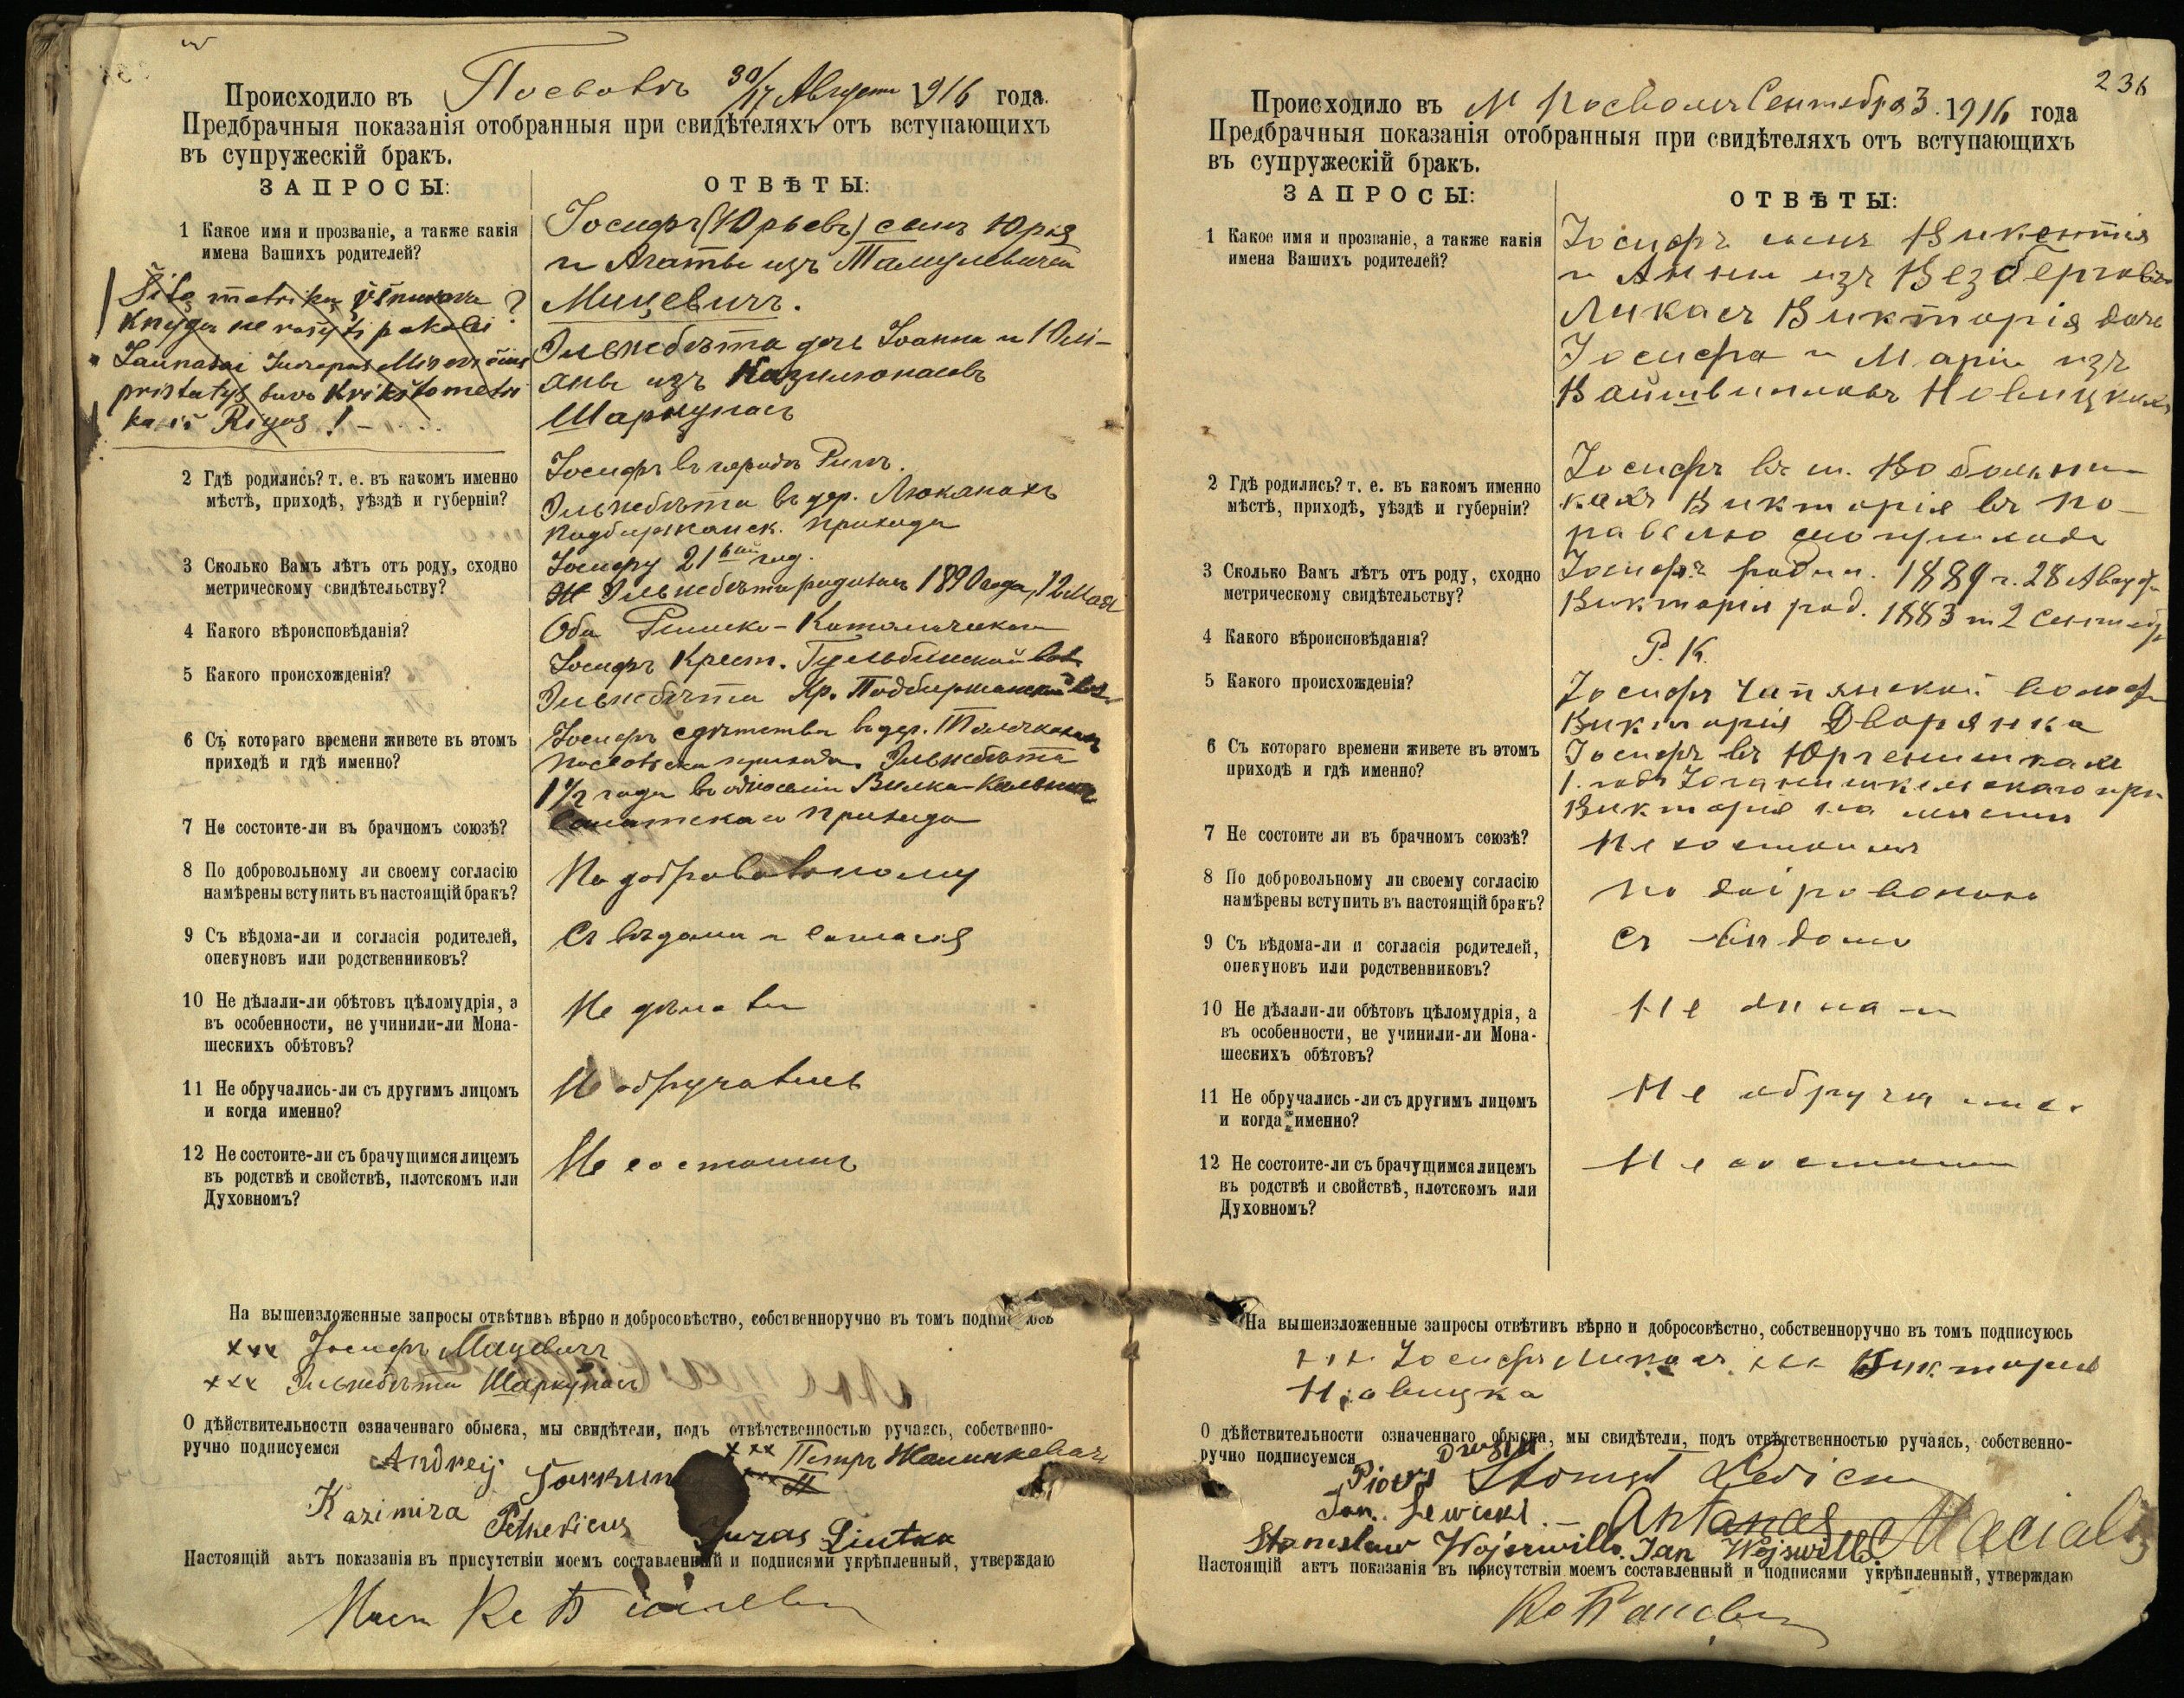 Происходило въ Посволѣ 30/17 Августа 1916 года.
Предбрачныя показанія отобранныя при свидѣтеляхъ отъ вступающихъ
въ супружескій бракъ.
ЗАПРОСЫ:
ОТВѢТЫ:
1 Какое имя и прозваніе, а также какія
имена Вашихъ родителей?
Іосифъ (Юрьевъ) сынъ Юрія
и Агаты изъ
Мицевичъ.
Эльжбѣта дочь Іоанна и Юлі-
аны изъ
Шаркунасъ
Šitą metriką
Knygon nerašyti pakolei
Jaunasai Juozapas
pristatys savo krikšto metri
ką iš Rygos ! - . . .
2 Гдѣ родились? т. е. въ какомъ именно
мѣстѣ, приходѣ, уѣздѣ и губерніи?
Іосифъ въ городѣ Ригѣ.
Эльжбѣта въ дер. Люканахъ
Подбиржанск. прихода
3 Сколько Вамъ лѣтъ отъ роду, сходно
метрическому свидѣтельству?
Іосифу 21 год.
Эльжбѣта родилась 1890 года, 12 Мая
4 Какого вѣроисповѣданія?
Оба Римско-Католическаго
5 Какого происхожденія?
Іосифъ Крест.
Эльжбѣта Кр. Подбиржанской вол.
6 Съ котораго времени живете въ этомъ
приходѣ и гдѣ именно?
Іосифъ съ дѣтства въ дер.
Посвольска прихода. Эльжбѣта
1 1/2 года въ
прихода
7 Не состоите-ли въ брачномъ союзѣ?
8 По добровольному ли своему согласію
намѣрены вступить въ настоящій бракъ?
По добровольному
9 Съ вѣдома-ли и согласія родителей,
опекуновъ или родственниковъ?
Съ вѣдома и согласія
10 Не дѣлали-ли обѣтовъ цѣломудрія, а
въ особенности, не учинили-ли Мона-
шескихъ обѣтовъ?
Не дѣлали
11 Не обручались-ли съ другимъ лицомъ
и когда именно?
Не обручались
12 Не состоите-ли съ брачущимся лицемъ
въ родствѣ и свойствѣ, плотскомъ или
Духовномъ?
Не состоимъ
На вышеизложенные запросы отвѣтивъ вѣрно и добросовѣстно, собственноручно въ томъ подписуюсь
xxx Іосифъ Мацевичъ
xxx Эльжбѣта Шаркунасъ
О дѣйствительности означеннаго обыска, мы свидѣтели, подъ отвѣтственностью ручаясь, собственно-
ручно подписуемся
Andrej
xxx Петръ
Kazimira Petkevicus
Juzas Liutka
Настоящій актъ показанія въ присутствіи моемъ составленный и подписями укрѣпленный, утверждаю
236
Происходило въ М Посволь Сентября 3. 1916 года
Предбрачныя показанія отобранныя при свидѣтеляхъ отъ вступающихъ
въ супружескій бракъ.
ЗАПРОСЫ:
ОТВѢТЫ:
1 Какое имя и прозваніе, а также какія
имена Вашихъ родителей?
Іосифъ сынъ Викентія
и Анны изъ
Ликасъ Викторія дочь
Іосифа и Маріи изъ
Новицкихъ
2 Гдѣ родились? т. е. въ какомъ именно
мѣстѣ, приходѣ, уѣздѣ и губерніи?
Іосифъ въ м. Вобольни-
кахъ Викторія въ По-
прихода
3 Сколько Вамъ лѣтъ отъ роду, сходно
метрическому свидѣтельству?
Іосифъ родил. 1889 г. 28 Августа
Викторія род. 1883 г. 2 Сентяб
4 Какого вѣроисповѣданія?
Р. К.
5 Какого происхожденія?
Іосифъ волости
Викторія Дворянка
6 Съ котораго времени живете въ этомъ
приходѣ и гдѣ именно?
Іосифъ въ
1. годъ
Викторія на мѣстѣ
7 Не состоите ли въ брачномъ союзѣ?
Не состоимъ
8 По добровольному ли своему согласію
намѣрены вступить въ настоящій бракъ?
По
9 Съ вѣдома-ли и согласія родителей,
опекуновъ или родственниковъ?
Съ вѣдома
10 Не дѣлали-ли обѣтовъ цѣломудрія, а
въ особенности, не учинили-ли Мона-
шескихъ обѣтовъ?
Не дѣлали
11 Не обручались-ли съ другимъ лицомъ
и когда именно?
Не обручались
12 Не состоите-ли съ брачущимся лицемъ
въ родствѣ и свойствѣ, плотскомъ или
Духовномъ?
Не состоимъ
На вышеизложенные запросы отвѣтивъ вѣрно и добросовѣстно, собственноручно въ томъ подписуюсь
xxx Іосифъ Ликасъ xxx Викторія
Новицка
О дѣйствительности означеннаго обыска, мы свидѣтели, подъ отвѣтственностью ручаясь, собственно-
ручно подписуемся
Piotr
Jan Lewicki Antanas
Stanisław Wojszwiłło. Jan Wojszwiłło.
Настоящій актъ показанія въ присутствіи моемъ составленный и подписями укрѣпленный, утверждаю